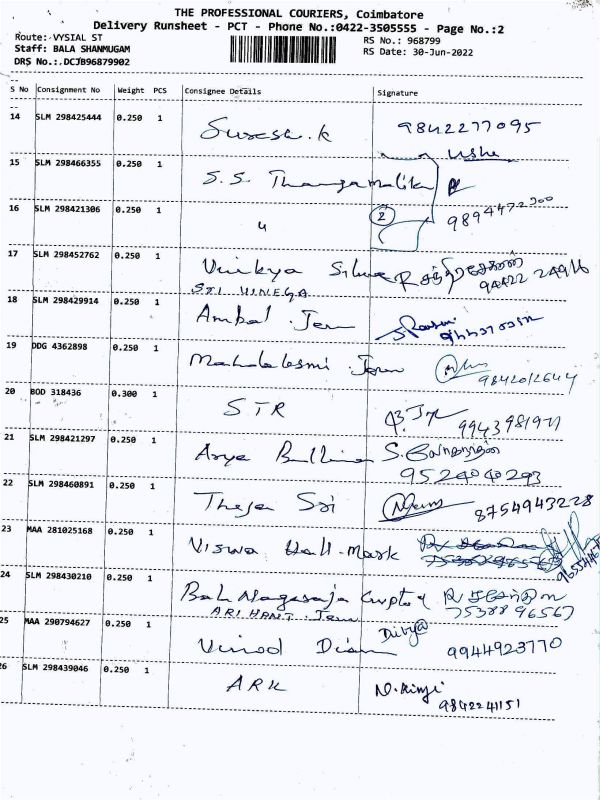 THE PROFESSIONAL COURIERS, Coimbatore
Delivery Runsheet - PCT - Phone No.:0422-3505555 - Page No.:2
Route: VYSIAL ST
RS No.: 968799
Staff: BALA SHANMUGAM
RS Date: 30-Jun-2022
DRS No.:.DCJB96879902
S No Consignment No Weight PCS Consignee Details Signature
14 SLM 298425444 0.250 1 Suresh.K 9842277095
Usha
15 SLM 298466355 0.250 1 S.S. Thangamalika
16 SLM 298421306 0.250 1 " 2 9894472300
17 SLM 298452762 0.250 1 Silver
SRI VINEGA 94422 24916
18 SLM 298429914 0.250 1 Ambal Jem
19 DDG 4362898 0.250 1 Mahalakshmi Jem
9842012644
20 BOD 318436 0.300 1 STR 9943981971
21 SLM 298421297 0.250 1 Arya Bullion S.
9524040293
22 SLM 298460891 0.250 1 Theja Sri 8754943228
23 MAA 281025168 0.250 1 Viswa Hall-Mark
24 SLM 298430210 0.250 1 Bala Nagaraja Gupta &
ARIHANT Jem 75388 96567
25 MAA 290794627 0.250 1 Vinod Diam Divya
9944923770
26 SLM 298439046 0.250 1 ARK
9842241151